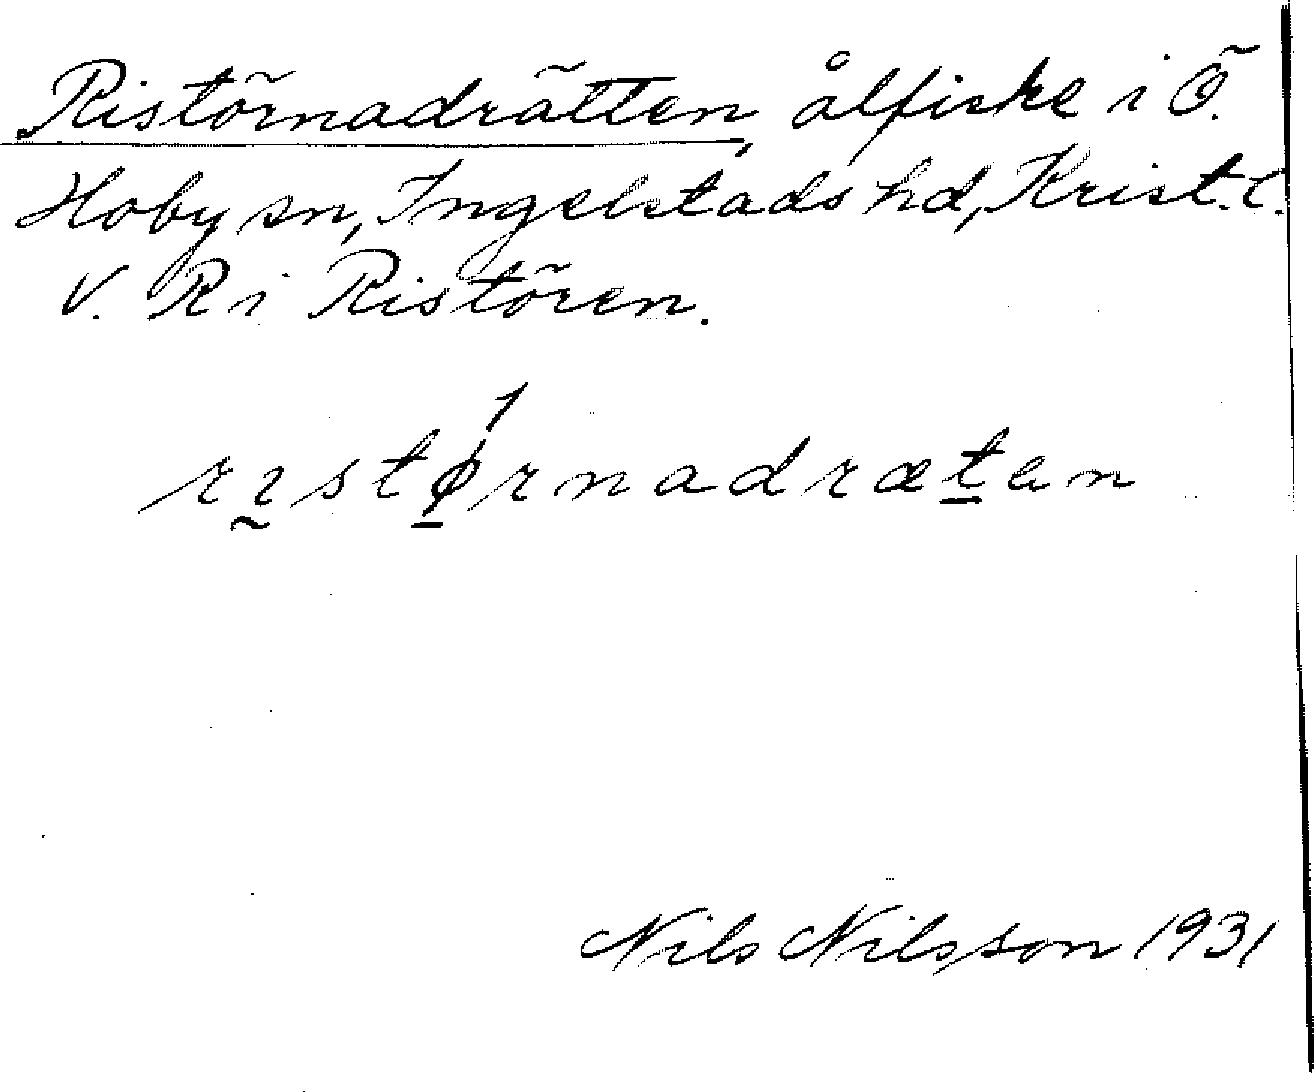 Ristörnadrätten, ålfiske i Ö.
Hoby sn, Ingelstads hd, Krist. l.
V. R i Ristören.
ristø̱rnadræṯen
Nils Nilsson 1931